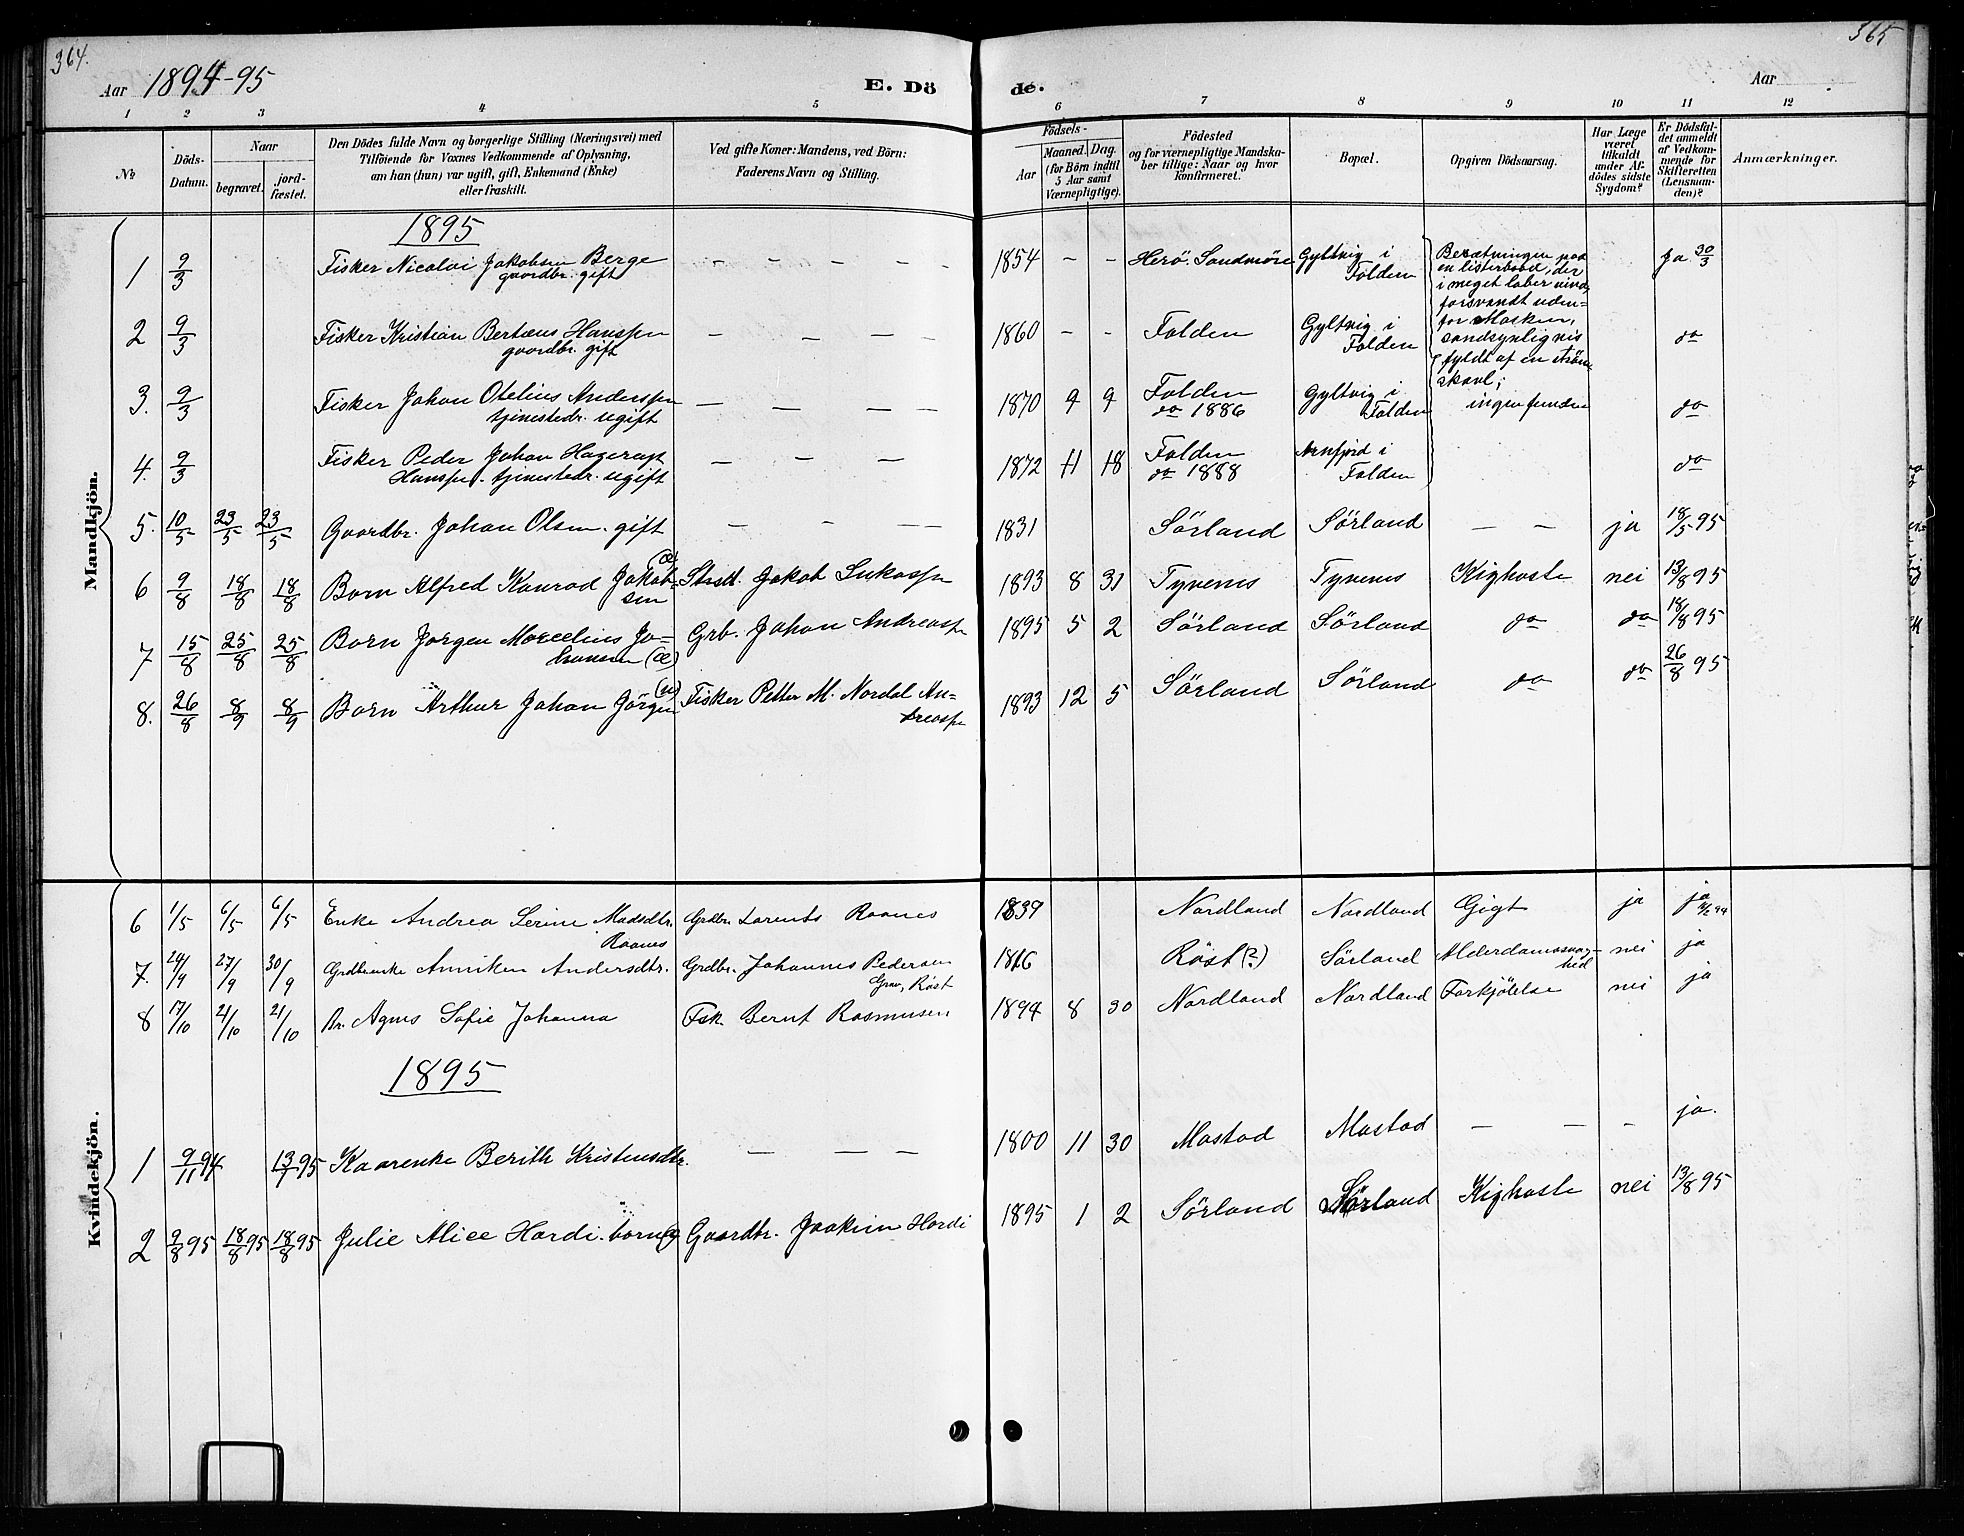 364.
365
Aar 1894-95
E. Dö
de.
Aar
1 2 3 4 5 6 7 8 9 10 11 12
No
Döds-Datum.
Naar
begravet.
jord-fæstet.
Den Dödes fulde Navn og borgerlige Stilling (Næringsvei) med
Tilföiende for Voxnes Vedkommende af Oplysning,
om han (hun) var ugift, gift, Enkemand (Enke)
eller fraskilt.
Ved gifte Koner: Mandens, ved Börn:
Faderens Navn og Stilling.
Födsels-
Aar
Maaned. Dag.
(for Börn indtil
5 Aar samt
Værnepligtige).
Födested
og for værnepligtige Mandska-
ber tillige: Naar og hvor
konfirmeret.
Bopæl.
Opgiven Dödsaarsag.
Har Læge
været
tilkaldt
under Af-
dödes sidste
Sygdom?
Er Dödsfal-
det anmeldt
af Vedkom-
mende for
Skifteretten
(Lensman-
den)?
Anmærkninger.
Mandkjön.
1895
1 9/3 Fisker Nicolai Jakobsen Berge — — — — — 1854 — — Herö. Sondmöre Gyltvig i
gaardbr. gift Folden
Beretningen paa
en listerbaad, der
i meget laber vind
forsvandt uden=
for Mosken,
sandsynligvis
fyldt af en ström
skavl;
ingen funden
ja 30/3
2 9/3 Fisker Kristian Bertæus Hanssen — — — — 1860 — — Folden Gyltvig i do
gaardbr. gift Folden
3. 9/3 Fisker Johan Otelius Anderssen — — — — 1870 9 9 Folden Gyltvig i do
tjenestedr. ugift do 1886 Folden
4. 9/3 Fisker Peder Johan Hagerup — — — — 1872 11 18 Folden Arnfjord i do
Hanssen. tjenestedr. ugift do 1888 Folden
5. 10/5 23/5 23/5 Gaardbr. Johan Olsen. gift — — — — 1831 Sörland Sörland — — ja 18/5 95
6 9/8 18/8 18/8 Barn Alfred Konrad Jakob= (æ) Strsd. Jakob Lukassen 1893 8 31 Tyvenes Tyvenes Kighoste nei 13/8 95
sen
7 15/8 25/8 25/8 Barn Jorgen Marcelius Jo= Grb. Johan Andreassen 1895 5 2 Sörland Sörland do do 18/8 95
hansen (æ)
8. 26/8 8/9 8/9 Barn Arthur Johan Jörgen Fisker Petter M. Nordal An= 1893 12 5 Sörland Sörland do do 26/8 95
dreassen
Kvindekjön.
6 1/5 6/5 6/5 Enke Andrea Serine Madsdtr. Grdbr. Lorents Raanes 1839 Nordland Nordland Gigt ja ja
Raanes
7. 20/9 27/9 30/9 Grdbrenke Anniken Andersdtr. Grdbr. Johannes Pedersen 1816 Röst (?) Sörland Alderdomssvag= nei ja
Grav, Röst hed
8 17/10 21/10 21/10 Br. Agnes Sofie Johanna Fsk. Bernt Rasmusen 1894 8 30 Nordland Nordland Forkjölelse nei ja
1895
1 9/11 94 13/7 95 Kaarenke Berith Kristensdtr. — — — 1800 11 30 Mostad Mostad — — — ja.
2 9/8 95 18/8 95 18/8 95 Julie Alice Hardi. barn Gaardbr. Joakim Hardi 1895 1 2 Sörland Sörland Kighoste nei 13/8 95